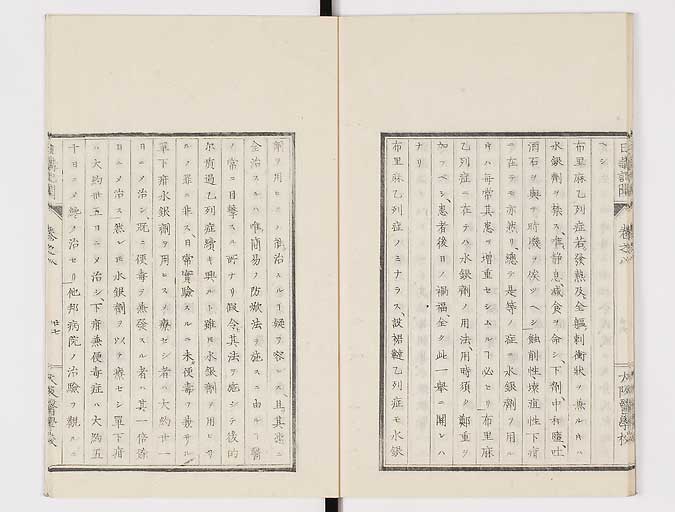 ベシ
布里麻乙列症若シ發熱及全軀刺衝狀ヲ兼ルキハ
水銀劑ヲ禁ス、唯靜息減食ヲ命シ、下劑中和鹽吐
酒石ヲ與テ時機ヲ俟ツヘシ、蝕削性壞疽性下疳
ニ在テモ亦然リ、總テ是等ノ症ニ水銀劑ヲ用ル
キハ毎常其患ヲ増重セシムルヿ必セリ布里麻
乙列症ニ在テハ水銀劑ノ用法、用時須ク鄭重ヲ
加フベシ、患者後日ノ禍福、全ク此一擧ニ關レハ
ナリ
布里麻乙列症ノミナラス、設裙韃乙列症モ水銀
日講記聞 卷之八 大阪醫學校
劑ヲ用ヒスノ能治スルヿ疑ヲ容レス、且其速ニ
全治スルハ唯簡易ノ防焮法ヲ施スニ由ルヿ醫
ノ常ニ目擊スル所ナリ假令其法ヲ施シテ後的
尓質過乙列症續キ興ルト雖モ水銀劑ヲ用ヒサ
ルノ罪ニ非ス、日常實驗スルニ未便毒ヲ發サル
單下疳水銀劑ヲ用ヒスノ療セシ者ハ大約廿一
日ニノ治シ、既ニ便毒ヲ兼發スル者ハ其一倍許
日ニノ治ス然レ水銀劑ヲ以テ療セシ單下疳
ハ大約廿五日ニノ治シ、下疳兼便毒症ハ大約五
十日ニノ纔ニ治セリ他邦病院ノ治驗ヲ觀ルニ
日講記聞 卷之八 廿七 大阪醫學校